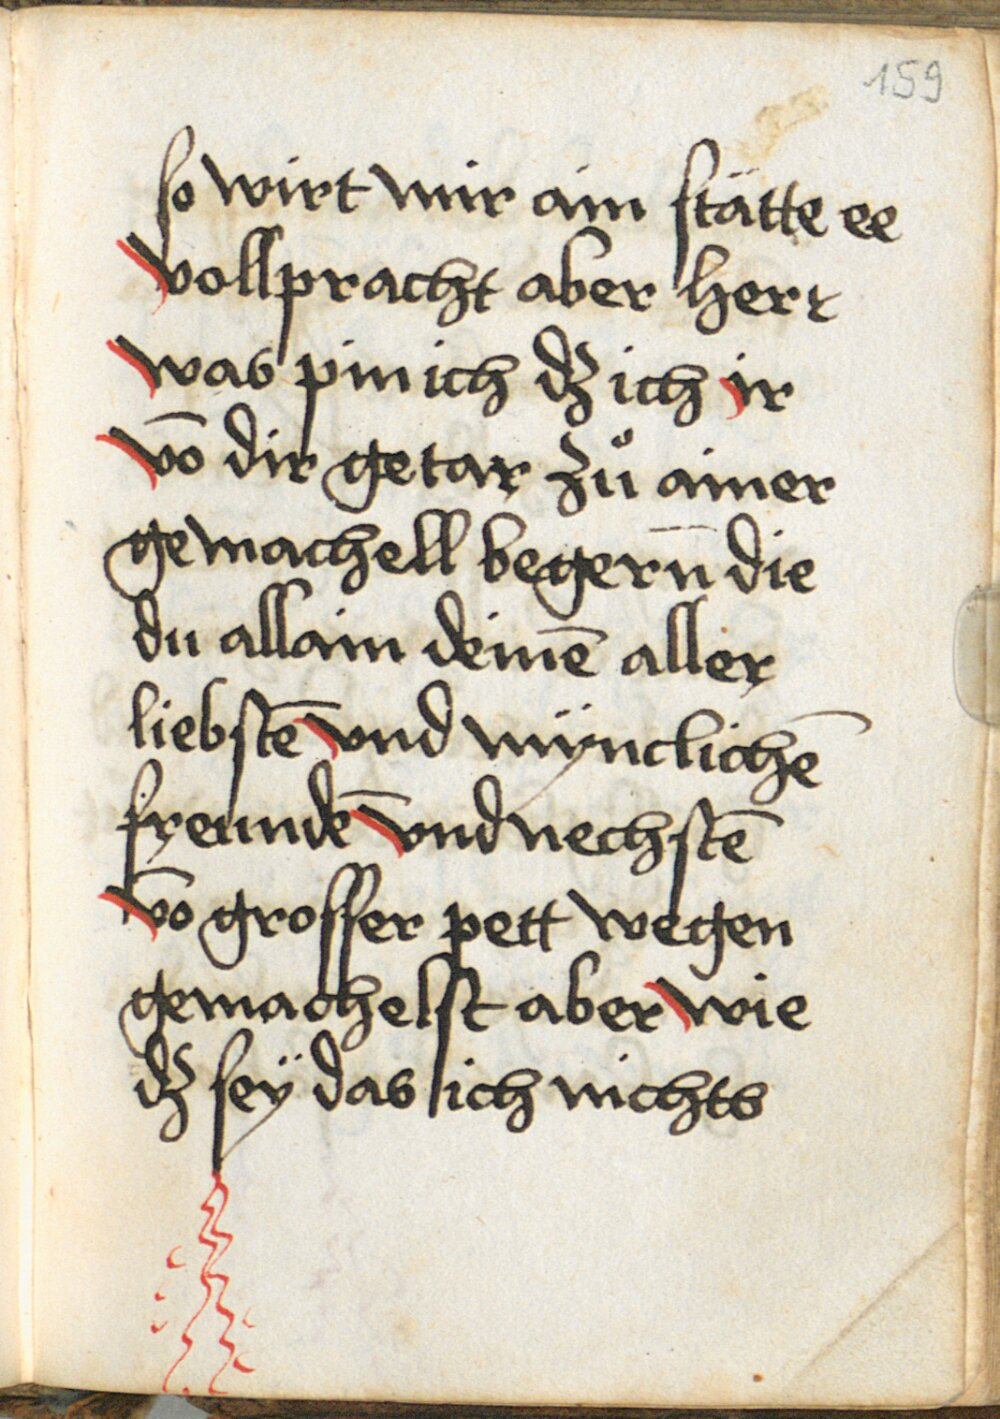 159
so wirt mir ain stätte ee
vollpracht aber herr
was pin ich dz ich ir
vō dir getar zů ainer
gemachell begern̄ die
du allain deinē aller
liebstē vnd mÿnclichē
freundē vnd nechstē
vō grosser pett wegen
gemachelst aber wie
dz seÿ das ich nichts